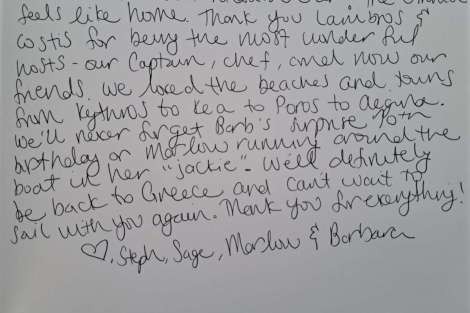 feels like home. Thank you Lambros &
Costis for being the most wonderful
hosts - our Captain, chef, and now our
friends. We loved the beaches and towns
from Kythnos to Kea to Poros to Aegina.
We'll never forget Barb's surprise 70th
birthday or Marlow running around the
boat in her "jackie". We'll definitely
be back to Greece and can't wait to
sail with you again. Thank you for everything!
♡, Steph, Sage, Marlow & Barbara